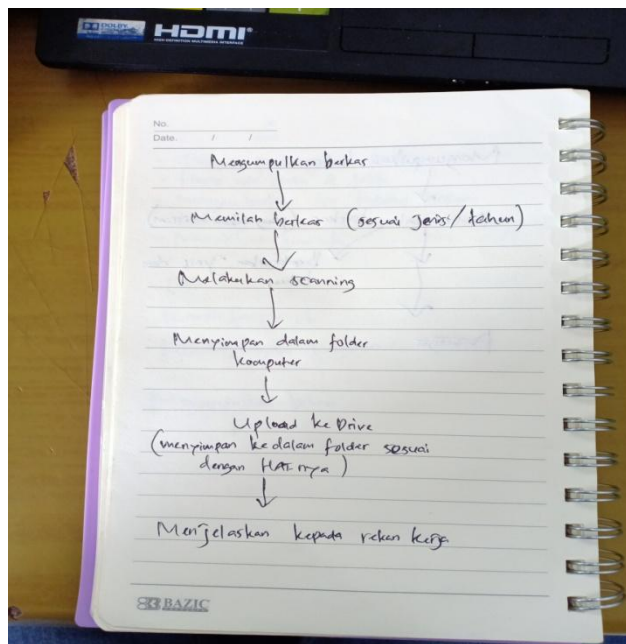 DOLBY
HDMI
HIGH-DEFINITION MULTIMEDIA INTERFACE
No.
Date. / /
Mengumpulkan berkas
Memilah berkas (sesuai jenis/tahun)
Melakukan scanning
Menyimpan dalam folder
komputer
Upload ke Drive
(menyimpan kedalam folder sesuai
dengan nya)
Menjelaskan kepada rekan kerja
BAZIC